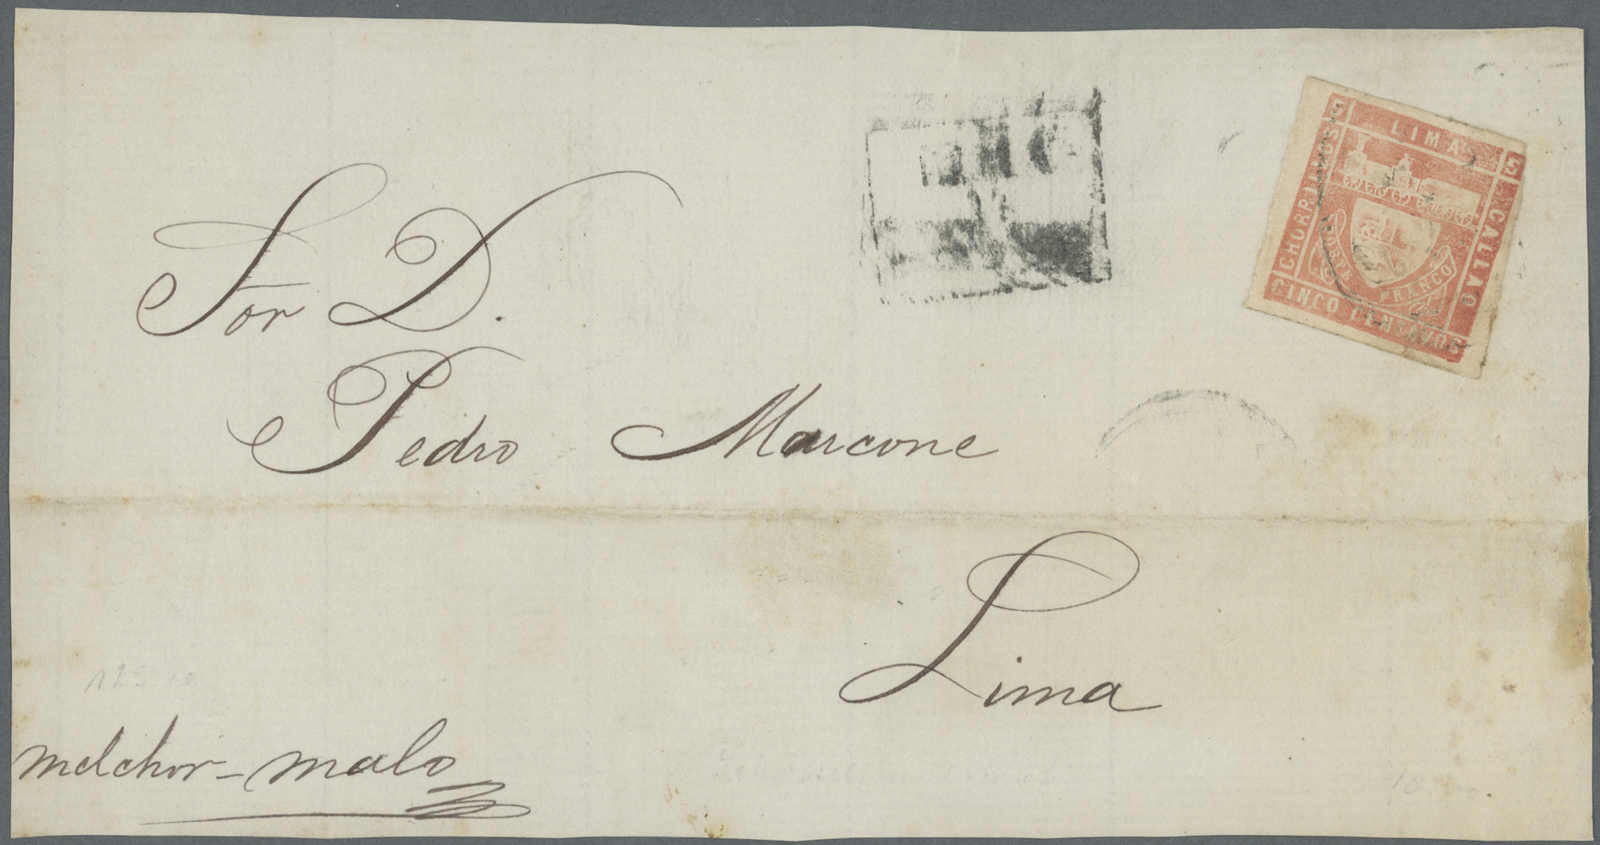 Sor D.
Pedro Marcone
Lima
melchor - malo
5 LIMA 5
CHORRILLOS
CALLAO
PORTE FRANCO
CINCO CENTAVOS